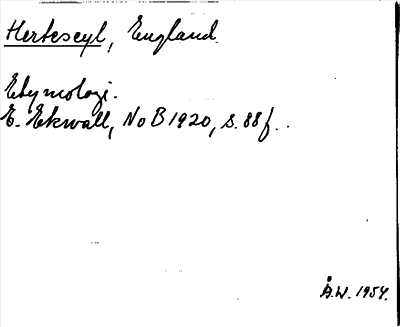 Herteseyl, England.
Etymologi.
E. Ekwall, NoB 1920, s. 88 f.
Å.W. 1954.